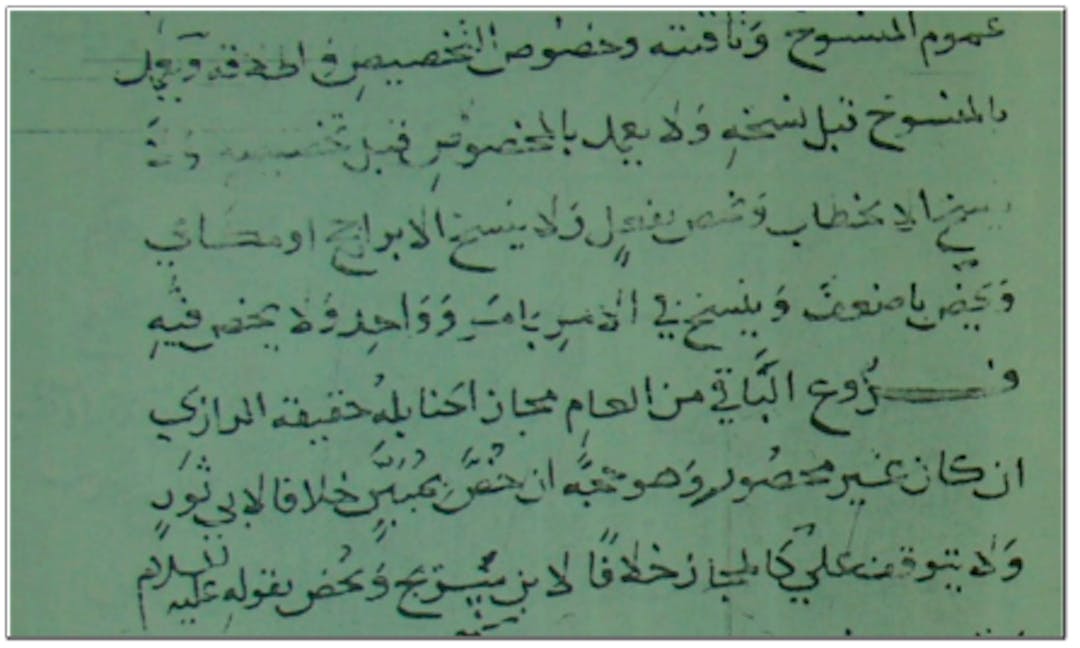 عموم المنسوخ وثاقبته وخصوص التخصيص في اطلاقه ويعمل
بالمنسوخ قبل نسخه ولا يعمل بالمخصوص قبل تخصيصه ولا
ينسخ الا بخطاب ويخص بفعل ولا ينسخ الا براجح او مساوي
ويخص باضعف وينسخ في الامر بامر وواحد ولا يخص فيه
فروع الباقي من العام مجاز الحنابلة حقيقة الرازي
ان كان غير محصور وهو حجة ان خص بمبين خلافا لابي ثور
ولا يتوقف علي كالمجاز خلافا لابن سريج ويخص بقوله عليه السلام